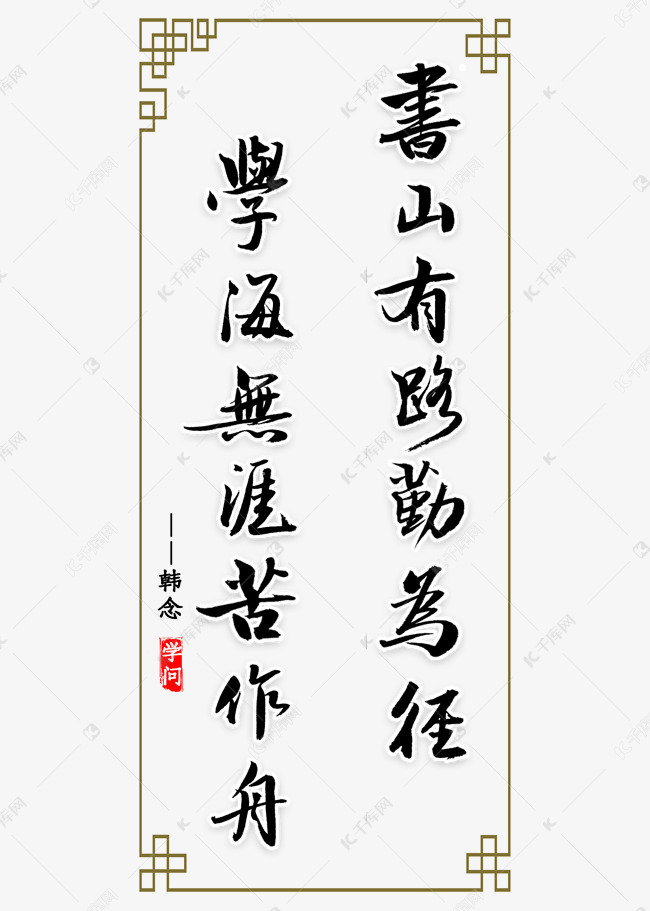 書山有路勤為徑
學海無涯苦作舟
——韩念
学问
千库网